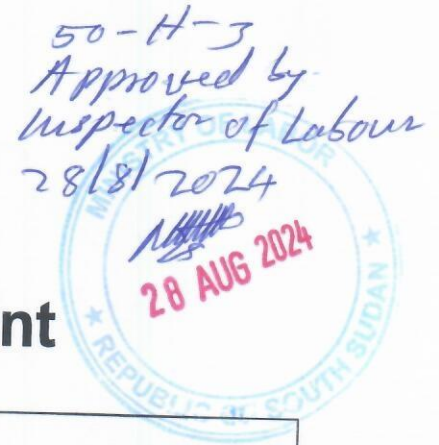 50-H-3
Approved by
Inspector of Labour
28/8/2024
28 AUG 2024
MINISTRY OF LABOR
REPUBLIC OF SOUTH SUDAN
nt